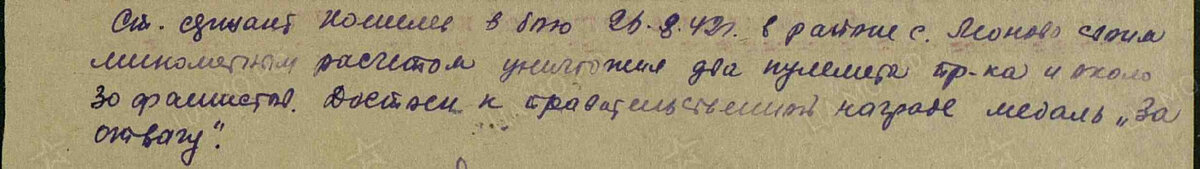 Ст. сержант в бою 26.8.42г. в районе с. Леоново своим
минометным расчетом уничтожил два пулемета пр-ка и около
30 фашистов. Достоен к правительственной награде медаль „За
отвагу".